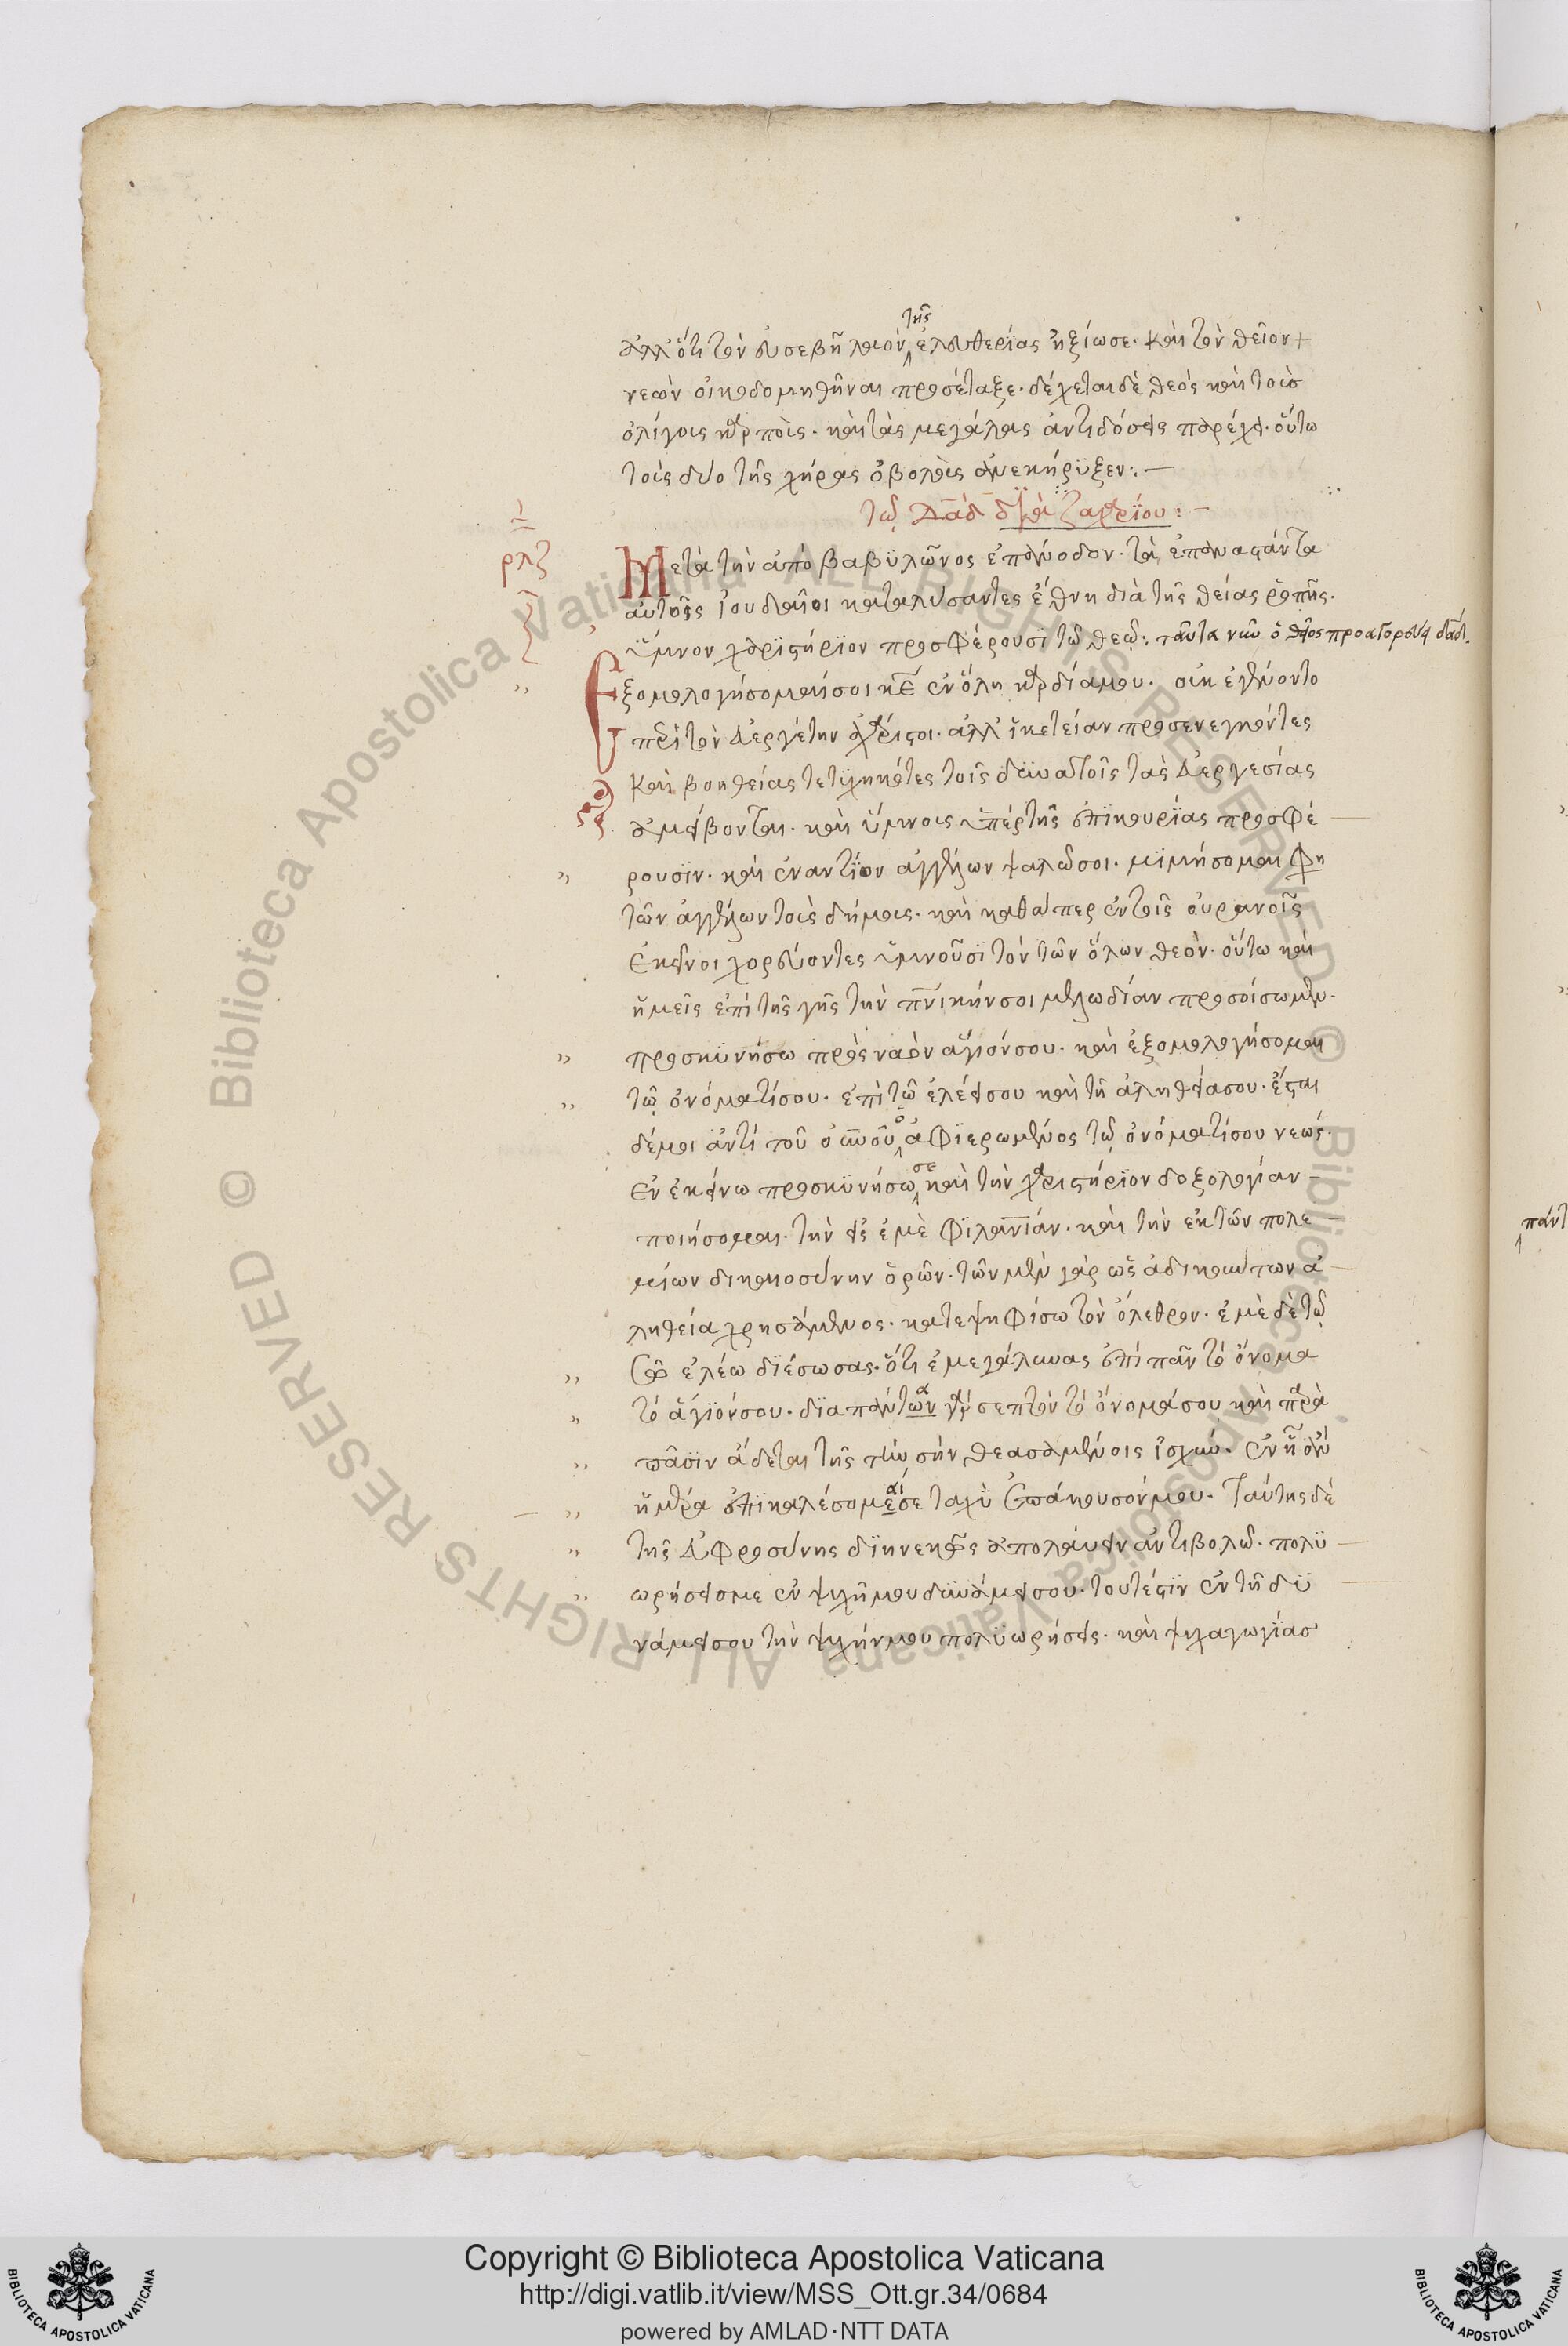 ἀλλ' ὅτι τὸν εὐσεβῆ λαὸν τῆς ἐλευθερίας ἠξίωσε. καὶ τὸν θεῖον +
νεὼν οἰκοδομηθῆναι προσέταξε. δέχεται δὲ θεὸς καὶ τοὺς
ὀλίγους καρποὺς. καὶ τὰς μεγάλας ἀντιδόσεις παρέχει. οὕτω
τοὺς δύο τῆς χήρας ὀβολοὺς ἀνεκήρϋξεν:. —
τῷ Δαδ διὰ ζαχαρΐου: —
ρλζ
Μετὰ τὴν ἀπὸ βαβϋλῶνος ἐπάνοδον. τὰ ἐπαναστάντα
αὐτοῖς Ἰουδαῖοι καταλύσαντες ἔθνη διὰ τῆς θείας ῥοπῆς.
ὕμνον χαριστήριον προσφέρουσι τῷ θεῷ: ταῦτα νῦν ὁ θεῖος προαγορεύει δαδ.
Ἐξομολογήσομαί σοι κε ἐν ὅλη καρδία μου. οὐκ ἐγένοντο
περὶ τὸν εὐεργέτην ἀχάριστοι. ἀλλ' ἱκετείαν προσενεγκόντες
καὶ βοηθείας τετυχηκότες τοῖς δυνατοῖς τὰς εὐεργεσίας
ἀμείβονται. καὶ ὕμνους ὑπὲρ τῆς ἐπϊκουρίας προσφέ
ρουσϊν. καὶ ἐναντΐον ἀγγέλων ψαλῶ σοι. μϊμήσομαι φη
τῶν ἀγγέλων τοὺς δήμους. καὶ καθάπερ ἐν τοῖς οὐρανοῖς
ἐκεῖνοι χορεύοντες ὑμνοῦσϊ τὸν τῶν ὅλων θεὸν. οὕτω καὶ
ἡμεῖς ἐπὶ τῆς γῆς τὴν πνικήν σοι μελωδίαν προσοίσωμεν.
προσκϋνήσω πρὸς ναὸν ἅγιόν σου. καὶ ἐξομολογήσομαι
τῷ ὀνόματί σου. ἐπὶ τῷ ἐλέει σου καὶ τῆ ἀληθεία σου. ἔσται
δέ μοι ἀντὶ τοῦ οὐνοῦ ὁ ἀφϊερωμένος τῷ ὀνόματί σου νεώς.
ἐν ἐκείνω προσκϋνήσω σε καὶ τὴν χαριστήρϊον δοξολογίαν —
ποιήσομαι. τὴν εἰς ἐμὲ φϊλανίαν. καὶ τὴν ἐκ τῶν πολε —
μίων δικαιοσύνην ὁρῶν. τῶν μὲν γὰρ ὡς ἀδικούντων ἀ —
ληθεία χρησάμενος. κατεψηφίσω τὸν ὄλεθρον. ἐμὲ δὲ τῷ
σῷ ἐλέω δϊέσωσας. ὅτι ἐμεγάλυνας ἐπὶ πᾶν τὸ ὄνομα
τὸ ἅγϊόν σου. δϊαπάντων γὰρ σεπτὸν τὸ ὄνομά σου καὶ παρὰ
πᾶσϊν ἄδεται τῆς τὴν σὴν θεασαμένοις ἰσχύν. ἐν ᾗ ἂν
ἡμέρα ἐπϊκαλέσομαί σε ταχὺ ἐπάκουσόν μου. Ταύτης δὲ
τῆς εὐφροσύνης δϊηνεκῶς ἀπολαύειν ἀντιβολῶ. πολϋ —
ωρήσεις με ἐν ψυχῆ μου δυνάμει σου. τουτέστϊν ἐν τῆ δϋ —
νάμει σου τὴν ψυχήν μου πολϋωρήσεις. καὶ ψυχαγωγίας
Copyright © Biblioteca Apostolica Vaticana
http://digi.vatlib.it/view/MSS_Ott.gr.34/0684
powered by AMLAD·NTT DATA